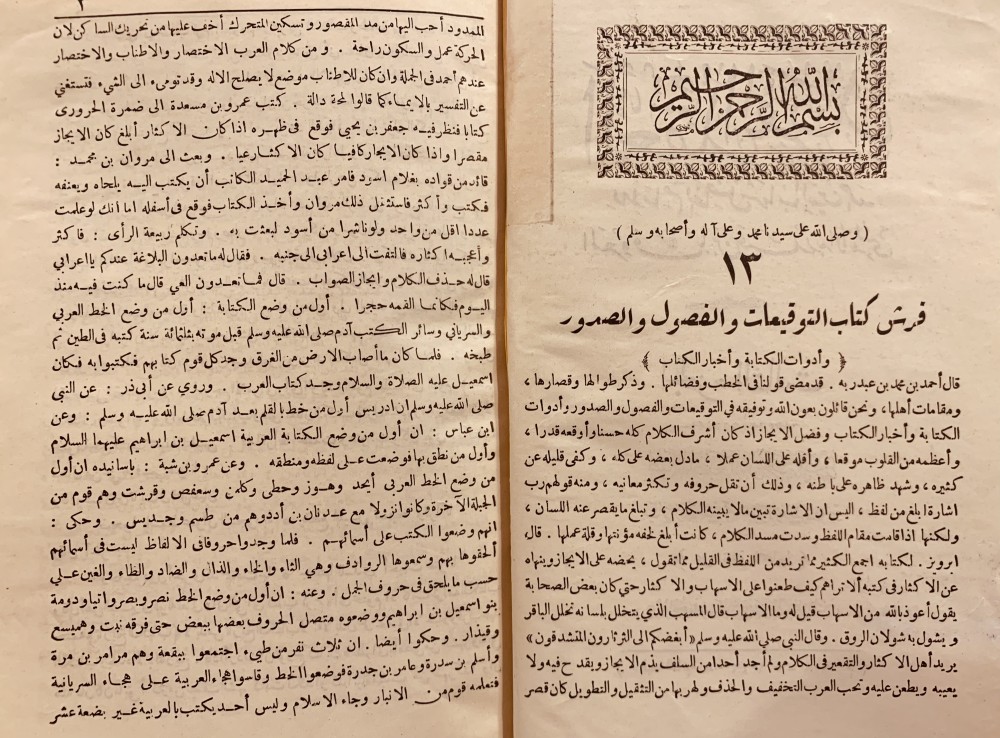 بسم الله الرحمن الرحيم
( وصلى الله على سيدنا محمد وعلى آله وأصحابه وسلم )
١٣
فرش كتاب التوقيعات والفصول والصدور
﴿ وأدوات الكتابة وأخبار الكتاب ﴾
قال أحمد بن محمد بن عبد ربه . قد مضى قولنا فى الخطب وفضائلها . وذكر طوالها وقصارها ،
ومقامات أهلها ، ونحن قائلون بعون الله وتوفيقه في التوقيعات والفصول والصدور وأدوات
الكتابة وأخبار الكتاب وفضل الايجاز اذ كان أشرف الكلام كله حسنا وأوقعه قدرا ،
وأعظمه من القلوب موقعا ، وأقله على اللسان عملا ، مادل بعضه على كله ، وكفى قليله عن
كثيره ، وشهد ظاهره على باطنه ، وذلك أن تقل حروفه وتكثر معانيه ، ومنه قولهم رب
اشارة ابلغ من لفظ ، اليس ان الاشارة تبين مالا يبينه الكلام ، وتبلغ ما يقصر عنه اللسان ،
ولكنها اذا قامت مقام اللفظ وسدت مسد الكلام ، كانت أبلغ لخفة مؤنتها وقلة عملها . قال
ابرويز . لكتابه اجمع الكثير مما تريد من اللفظ فى القليل مما تقول ، يحضه على الايجاز وينهاه
عن الاكثار فى كتبه ألا تراهم كيف طعنوا على الاسهاب والاكثار حتى كان بعض الصحابة
يقول أعوذ بالله من الاسهاب قيل له وما الاسهاب قال المسهب الذي يتخلل بلسانه تخلل الباقر
ويشول به شولان الروق . وقال النبي صلى الله عليه وسلم «أبغضكم الى الثرثارون المتشدقون»
يريد أهل الاكثار والتقعير فى الكلام ولم أجد أحدا من السلف يذم الايجاز ويقدح فيه ولا
يعيبه ويطعن عليه وتحب العرب التخفيف والحذف ولهربها من التثقيل والتطويل كان قصر
٣
الممدود أحب اليها من مد المقصور وتسكين المتحرك أخف عليها من تحريك الساكن لان
الحركة عمل والسكون راحة . ومن كلام العرب الاختصار والاطناب والاختصار
عندهم أحمد فى الجملة وان كان للاطناب موضع لا يصلح الا له وقد تومىء الى الشيء فتستغني
عن التفسير بالايماء كما قالوا لمحة دالة . كتب عمرو بن مسعدة الى ضمرة الحرورى
كتابا فنظر فيه جعفر بن يحيى فوقع فى ظهره اذا كان الاكثار أبلغ كان الايجاز
مقصرا واذا كان الايجاز كافيا كان الاكثار عيا . وبعث الى مروان بن محمد :
قائد من قواده بغلام اسود فامر عبد الحميد الكاتب أن يكتب اليه يلحاه ويعنفه
فكتب وأكثر فاستثقل ذلك مروان وأخذ الكتاب فوقع فى أسفله اما انك لو علمت
عددا اقل من واحد ولونا شرا من أسود لبعثت به . وتكلم ربيعة الرأى : فاكثر
وأعجبه اكثاره فالتفت الى اعرابى الى جنبه . فقال له ما تعدون البلاغة عندكم يا اعرابي
قال له حذف الكلام وايجاز الصواب . قال فما تعدون العي قال ما كنت فيه منذ
اليوم فكانما القمه حجرا . أول من وضع الكتابة : أول من وضع الخط العربي
والسرياني وسائر الكتب آدم صلى الله عليه وسلم قبل موته بثلثمائة سنة كتبه فى الطين ثم
طبخه . فلما كان ما أصاب الارض من الغرق وجد كل قوم كتابهم فكتبوا به فكان
اسمعيل عليه الصلاة والسلام وجد كتاب العرب . وروي عن أبى ذر : عن النبي
صلى الله عليه وسلم ان ادريس أول من خط بالقلم بعد آدم صلى الله عليه وسلم : وعن
ابن عباس : ان أول من وضع الكتابة العربية اسمعيل بن ابراهيم عليهما السلام
وأول من نطق بها فوضعت على لفظه ومنطقه . وعن عمرو بن شبة : باسانيده ان أول
من وضع الخط العربى أبجد وهوز وحطى وكلمن وسعفص وقرشت وهم قوم من
الجبلة الآخرة وكانوا نزولا مع عدنان بن أدد وهم من طسم وجديس . وحكى :
انهم وضعوا الكتب على أسمائهم . فلما وجدوا حروفا فى الالفاظ ليست فى أسمائهم
ألحقوها بهم وسموها الروادف وهي الثاء والخاء والذال والضاد والظاء والغين على
حسب ما يلحق فى حروف الجمل . وعنه : ان أول من وضع الخط نصر وبصر واتيا ودومة
بنو اسمعيل بن ابراهيم ووضعوه متصل الحروف بعضها ببعض حتى فرقه نبت وهميسع
وقيذار . وحكوا أيضا . ان ثلاث نفر من طيىء اجتمعوا ببقعة وهم مرامر بن مرة
وأسلم بن سدرة وعامر بن جدرة فوضعوا الخط وقاسوا هجاء العربية على هجاء السريانية
فتعلمه قوم من الانبار وجاء الاسلام وليس أحد يكتب بالعربية غير بضعة عشر